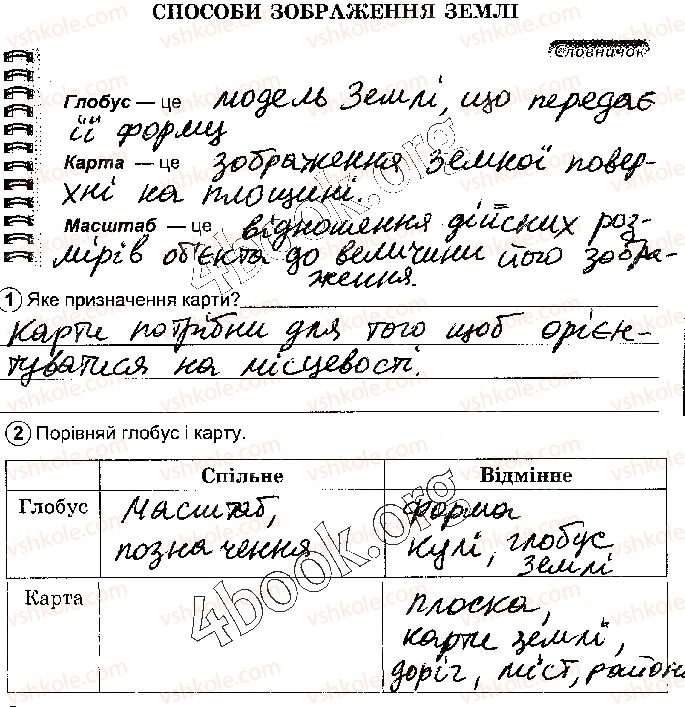 СПОСОБИ ЗОБРАЖЕННЯ ЗЕМЛІ
Словничок
Глобус — це модель Землі, що передає
її форму
Карта — це зображення земної повер-
хні на площині.
Масштаб — це відношення дійсних роз-
мірів об'єкта до величини його зобра-
ження.
1 Яке призначення карти?
Карти потрібни для того щоб орієн-
туватися на місцевості.
2 Порівняй глобус і карту.
Спільне Відмінне
Глобус Масштаб, форма
позначення кулі, глобус
Землі
Карта плоска,
карти землі,
доріг, міст, район
4book.org
4book.org
vshkole.com